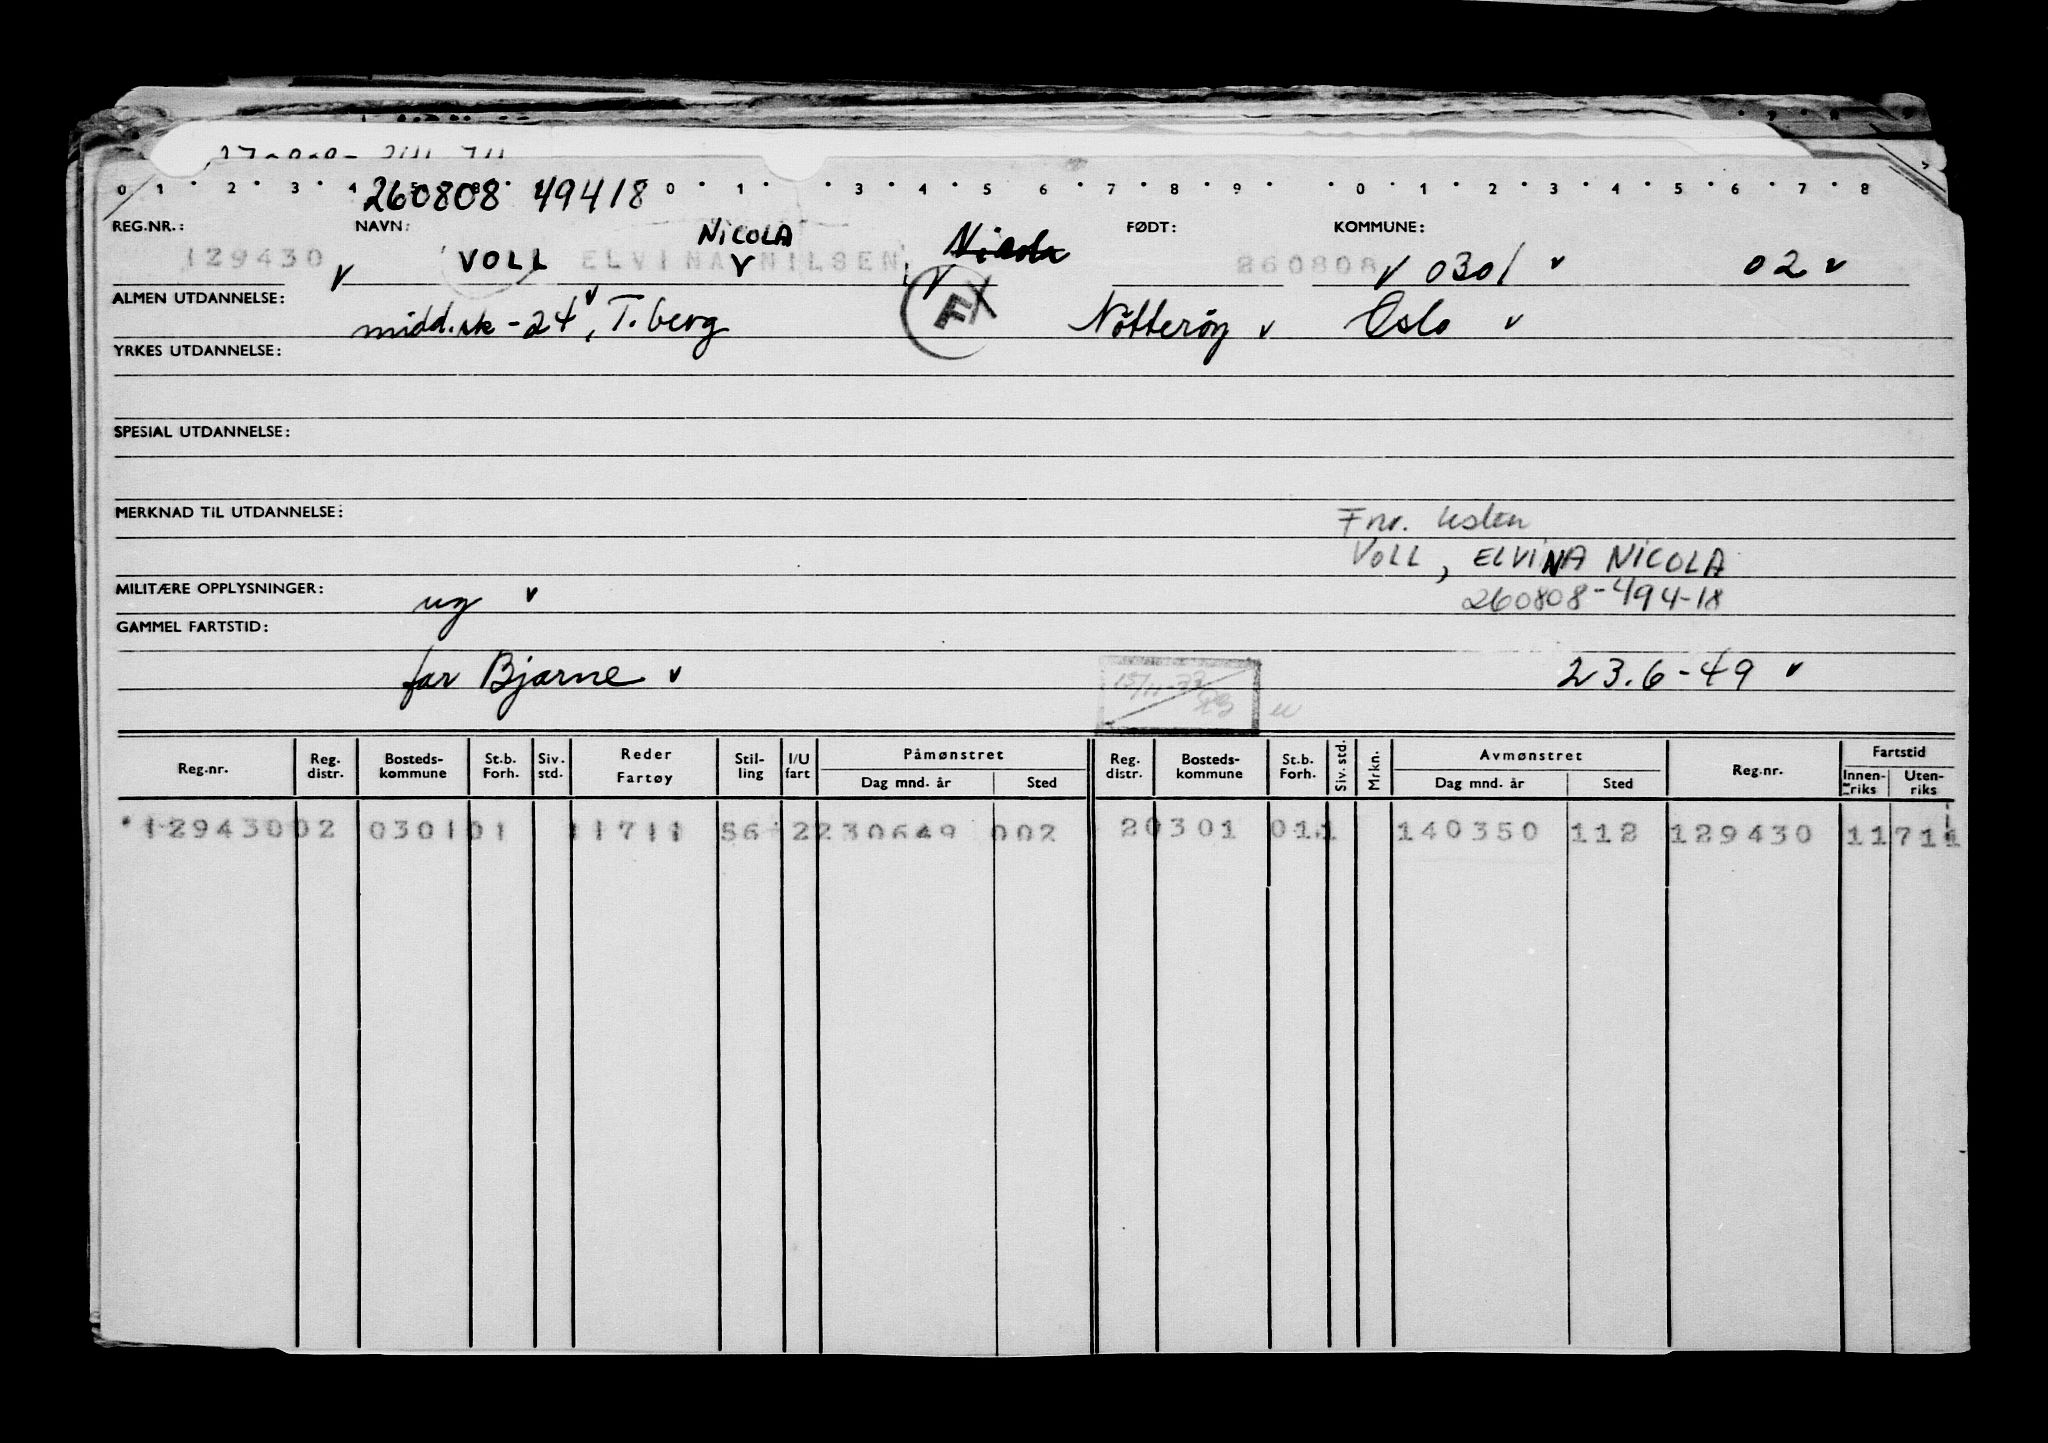 0 1 2 3 4 5 8 0 1 3 4 5 6 7 8 9 0 1 2 3 4 5 6 7 8
260808 49418
REG.NR.: NAVN: NICOLA FØDT: KOMMUNE:
129430 v VOLL ELVINA v NILSEN Nicola 260808 v 0301 v 02 v
ALMEN UTDANNELSE: midd.sk - 24 v, T.berg FX Nøtterøy v Oslo v
YRKES UTDANNELSE:
SPESIAL UTDANNELSE:
MERKNAD TIL UTDANNELSE:
Fnr. listen
VOLL, ELVINA NICOLA
260808-494-18
MILITÆRE OPPLYSNINGER: ug v
GAMMEL FARTSTID:
far Bjarne v 23.6-49 v
Reg.nr. Reg. distr. Bosteds- kommune St.b. Forh. Siv. std. Reder Fartøy Stil- ling I/U fart Påmønstret Dag mnd. år Sted Reg. distr. Bosteds- kommune St.b. Forh. Siv. std. Mrkn. Avmønstret Dag mnd. år Sted Reg.nr. Fartstid Innen- riks Uten- riks
129430 02 0301 01 11711 56 2 230649 002 20301 011 140350 112 129430 11711